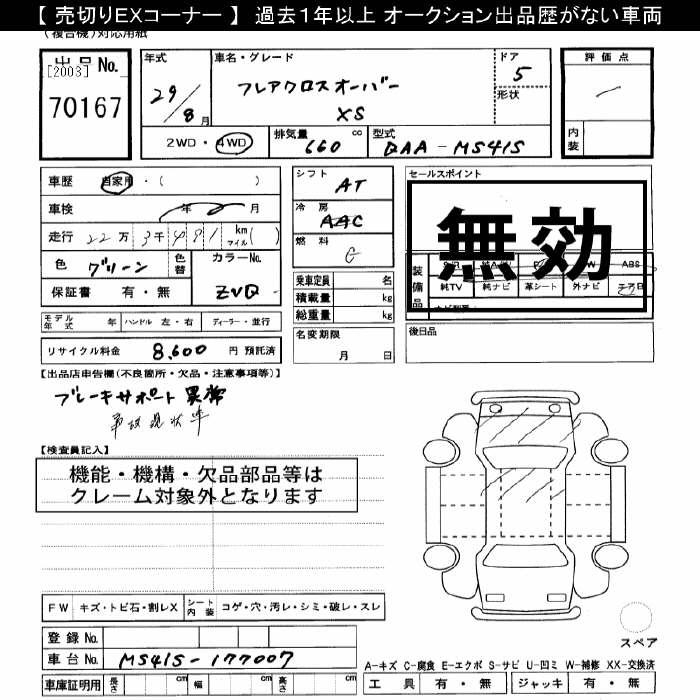 【 売切りEXコーナー 】 過去１年以上 オークション出品歴がない車両
(複合機)対応用紙
出品No.
[2003]
70167
年式
29/8月
車名・グレード
フレアクロスオーバー
XS
ドア
5
形状
評価点
内装
2WD・4WD
排気量 660 cc
型式 DAA-MS41S
車歴 自家用・( )
車検 年 月
走行 22万3千491 km マイル( )
色 グリーン
色替
カラーNo.
ZVQ
保証書 有・無
シフト AT
冷房 AAC
燃料 G
乗車定員 名
積載量 kg
総重量 kg
セールスポイント
無効
装備品
ABS
純TV 純ナビ 革シート 外ナビ
モデル年式 年 ハンドル 左・右 ディーラー・並行
リサイクル料金 8,600 円 預託済
名変期限
月 日
後日品
【出品店申告欄(不良箇所・欠品・注意事項等)】
ブレーキサポート異常
事故現状車
【検査員記入】
機能・機構・欠品部品等は
クレーム対象外となります
FW キズ・トビ石・割レX シート内装 コゲ・穴・汚レ・シミ・破レ・スレ
登録No.
車台No. MS41S-177007
車庫証明用 長さ cm 幅 cm 高さ cm
スペア
A-キズ C-腐食 E-エクボ S-サビ U-凹ミ W-補修 XX-交換済
工具 有・無 ジャッキ 有・無